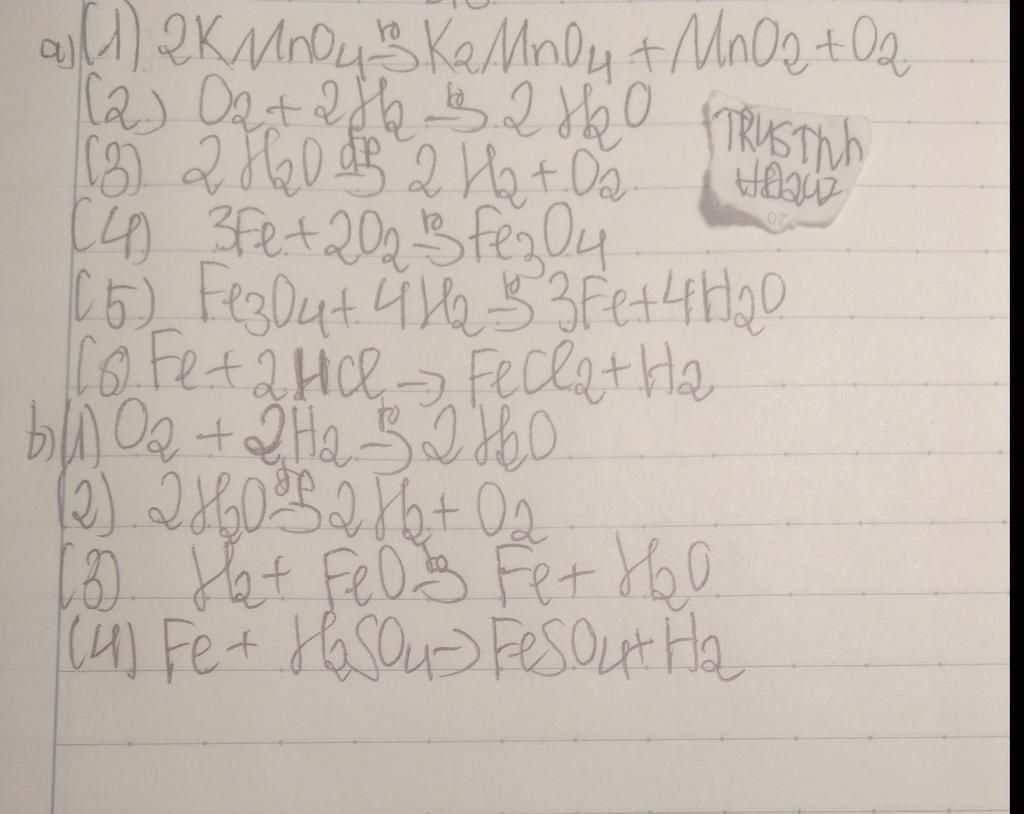 a) (1) 2KMnO4 t⁰→ K2MnO4 + MnO2 + O2
(2) O2 + 2H2 t⁰→ 2H2O
(3) 2H2O đp→ 2H2 + O2
(4) 3Fe + 2O2 t⁰→ Fe3O4
(5) Fe3O4 + 4H2 t⁰→ 3Fe + 4H2O
(6) Fe + 2HCl → FeCl2 + H2
b) (1) O2 + 2H2 t⁰→ 2H2O
(2) 2H2O đp→ 2H2 + O2
(3) H2 + FeO t⁰→ Fe + H2O
(4) Fe + H2SO4 → FeSO4 + H2
20